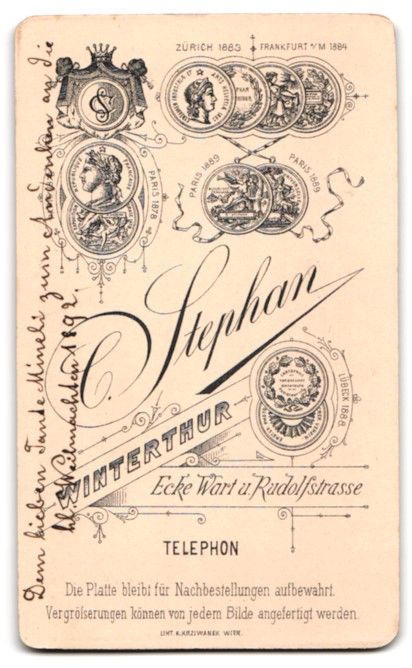 ZÜRICH 1883
FRANKFURT a/M 1884
PARIS 1878
PARIS 1889
PARIS 1889
C. Stephan
WINTERTHUR
LÜBECK 1888
Ecke Wart u. Rudolfstrasse
TELEPHON
Die Platte bleibt für Nachbestellungen aufbewahrt.
Vergröfserungen können von jedem Bilde angefertigt werden.
LITH. K. KRZIWANEK WIEN.
Dem lieben Tante Mineli zum Andenken an die
Weihnachten 1892.